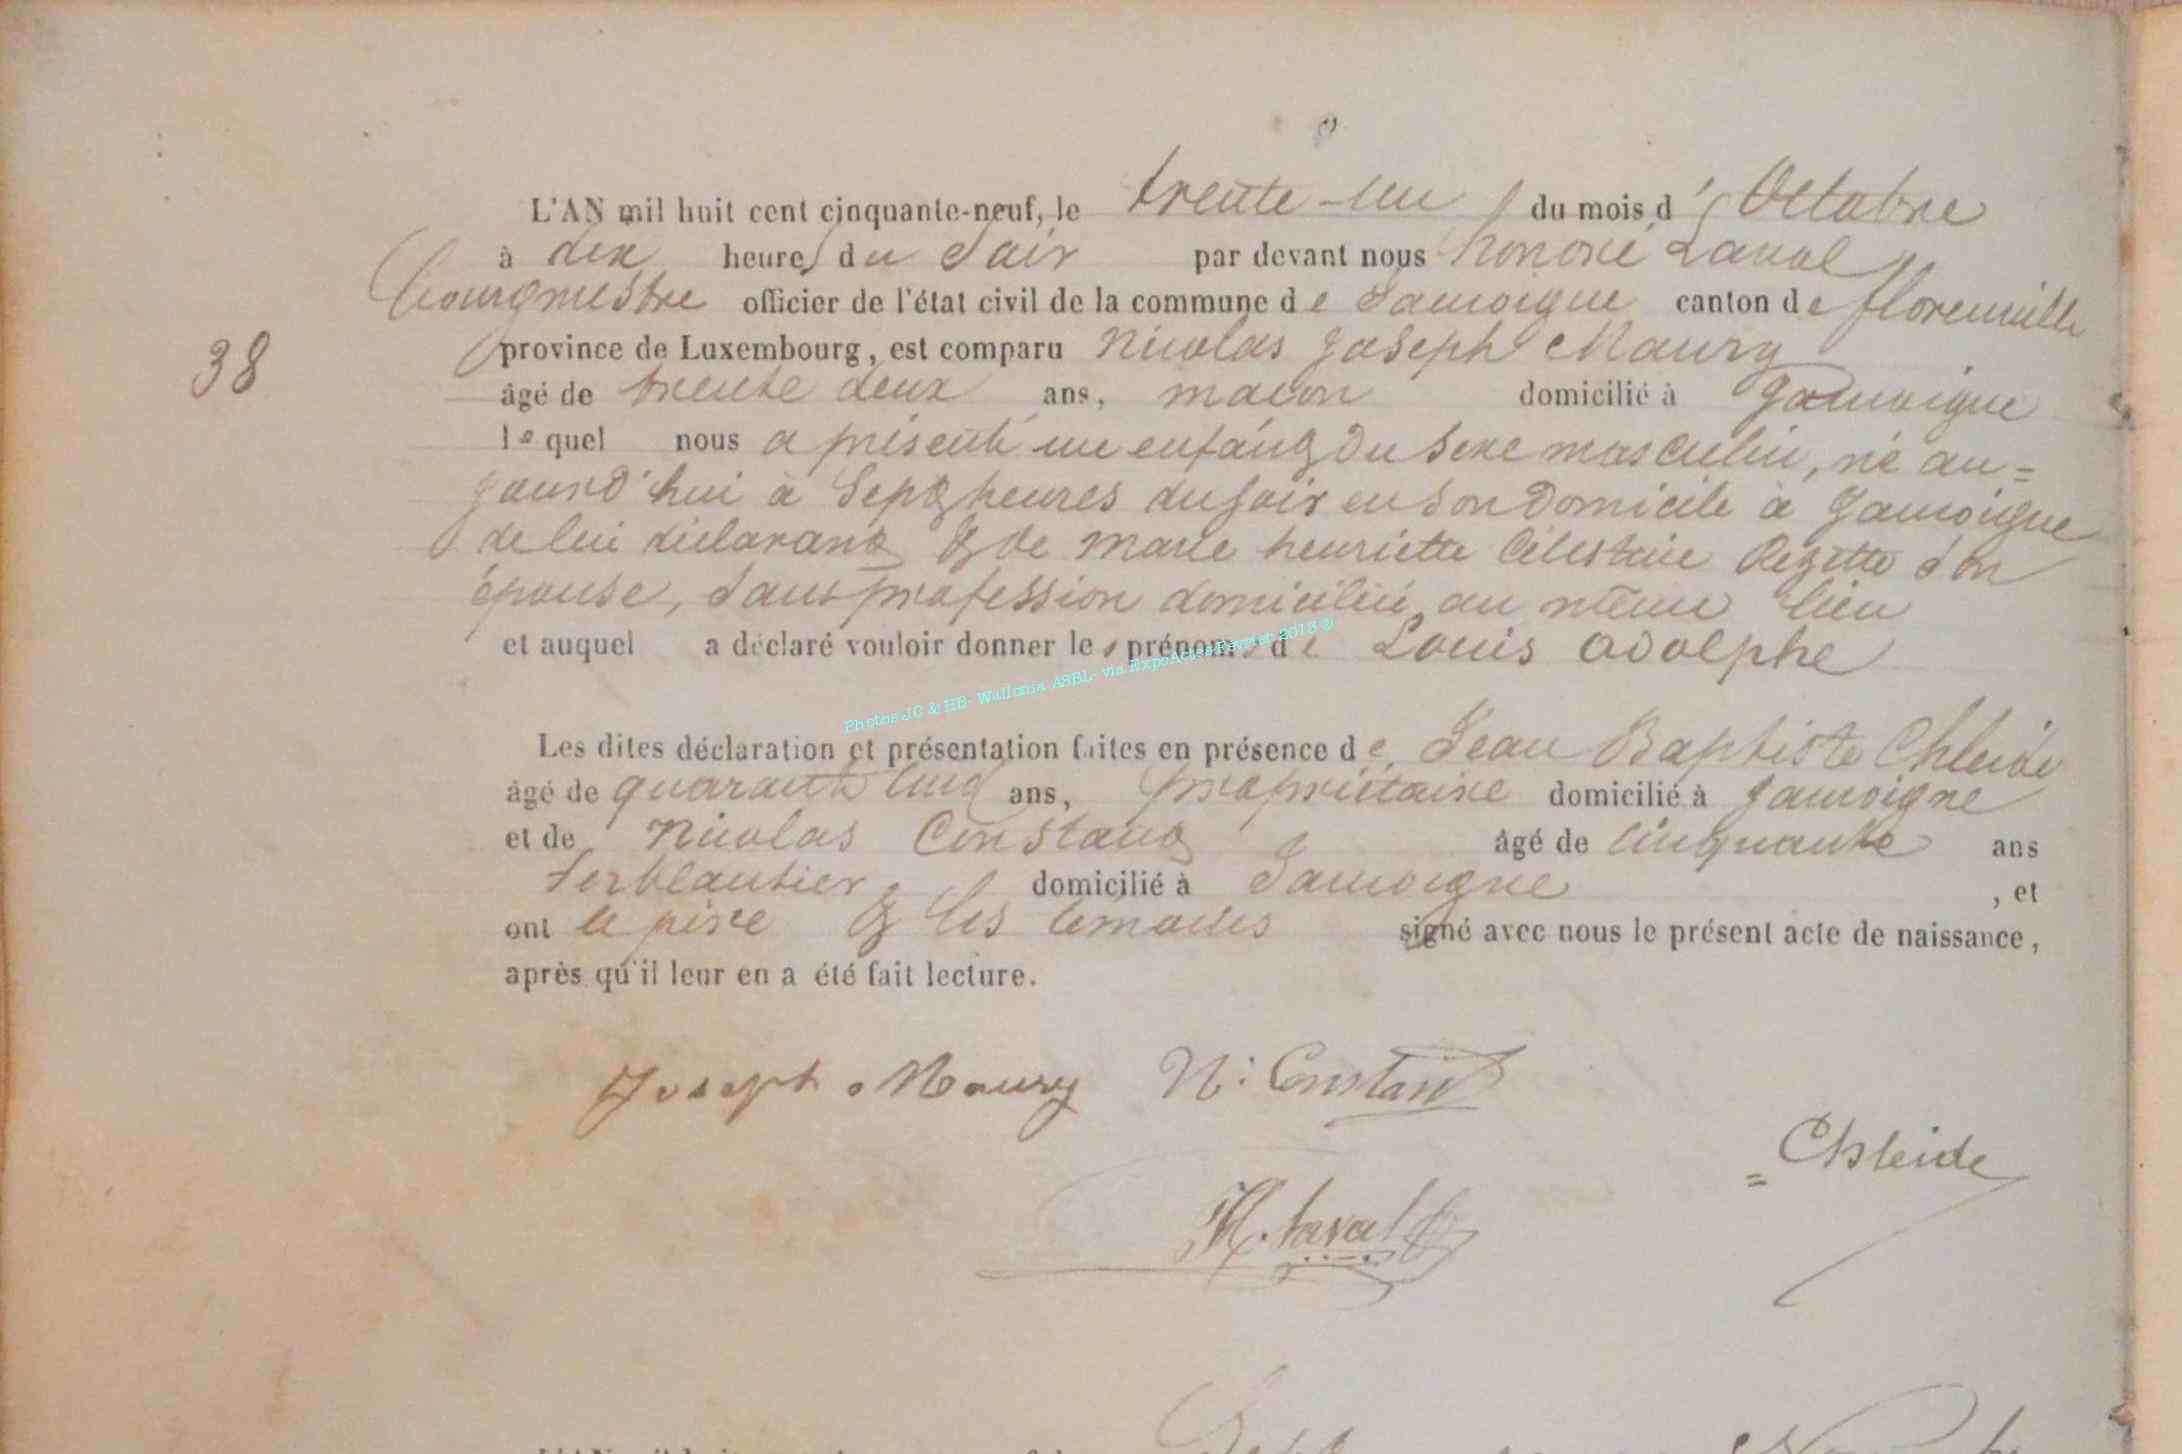 L'AN mil huit cent cinquante-neuf, le trente-un du mois d'Octobre
à dix heures du Soir par devant nous honoré Laval
bourgmestre officier de l'état civil de la commune de Jamoigne canton de florenville
38
province de Luxembourg, est comparu Nicolas Joseph Maury
âgé de trente deux ans, maçon domicilié à Jamoigne
lequel nous a présenté un enfant du Sexe masculin, né au=
jourd'hui à Sept heures du soir en Son Domicile à Jamoigne
de lui déclarant & de Marie henriette Célestine Rezette Son
épouse, Sans profession domiciliée au même lieu
et auquel a déclaré vouloir donner les prénoms de Louis Adolphe
Photos JC & HB- Wallonia ASBL- via ExpoActes Fevrier 2013 ©
Les dites déclaration et présentation faites en présence de Jean Baptiste Chleide
âgé de quarante cinq ans, propriétaire domicilié à Jamoigne
et de Nicolas Constant âgé de cinquante ans
ferblantier domicilié à Jamoigne , et
ont le père & les témoins signé avec nous le présent acte de naissance,
après qu'il leur en a été fait lecture.
Joseph Maury N: Constant
Chleide
H. Laval